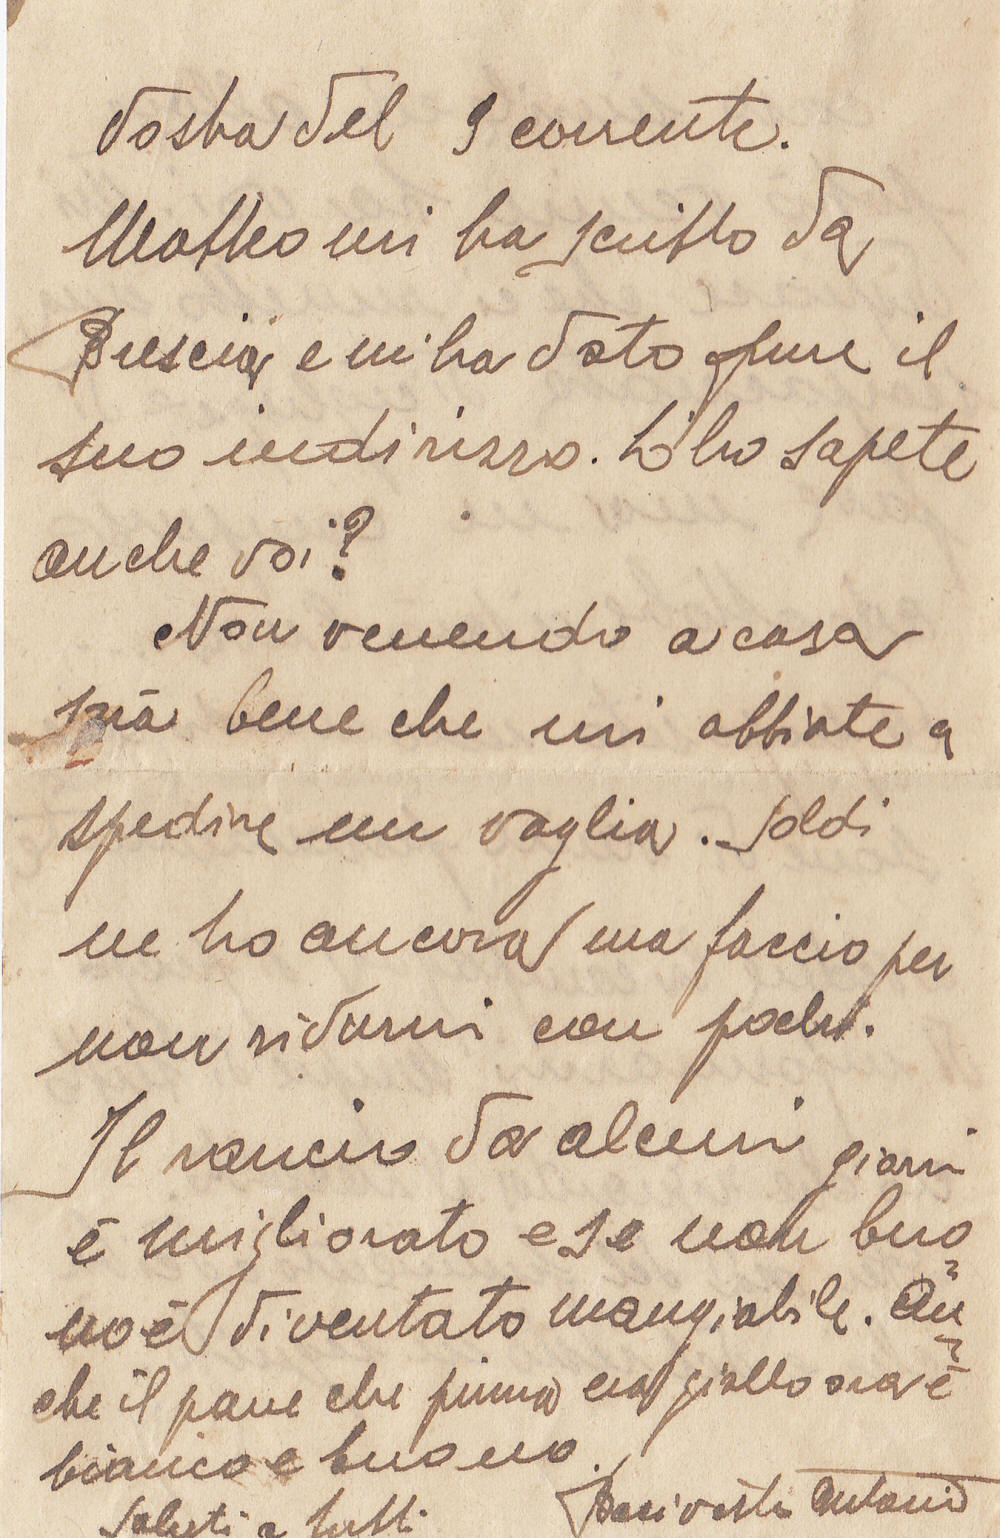 Vostra del 9 corrente.
Matteo mi ha scritto da
Brescia, e mi ha dato pure il
suo indirizzo. Lo sapete
anche voi?
Non venendo a casa
sarà bene che mi abbiate a
spedire un vaglia. Soldi
ne ho ancora, ma faccio per
non ridurmi con pochi.
Il rancio da alcuni giorni
è migliorato e se non buo
no è diventato mangiabile. An
che il pane che prima era giallo ora è
bianco e buono.
Saluti a tutti Baci vostro Antonio